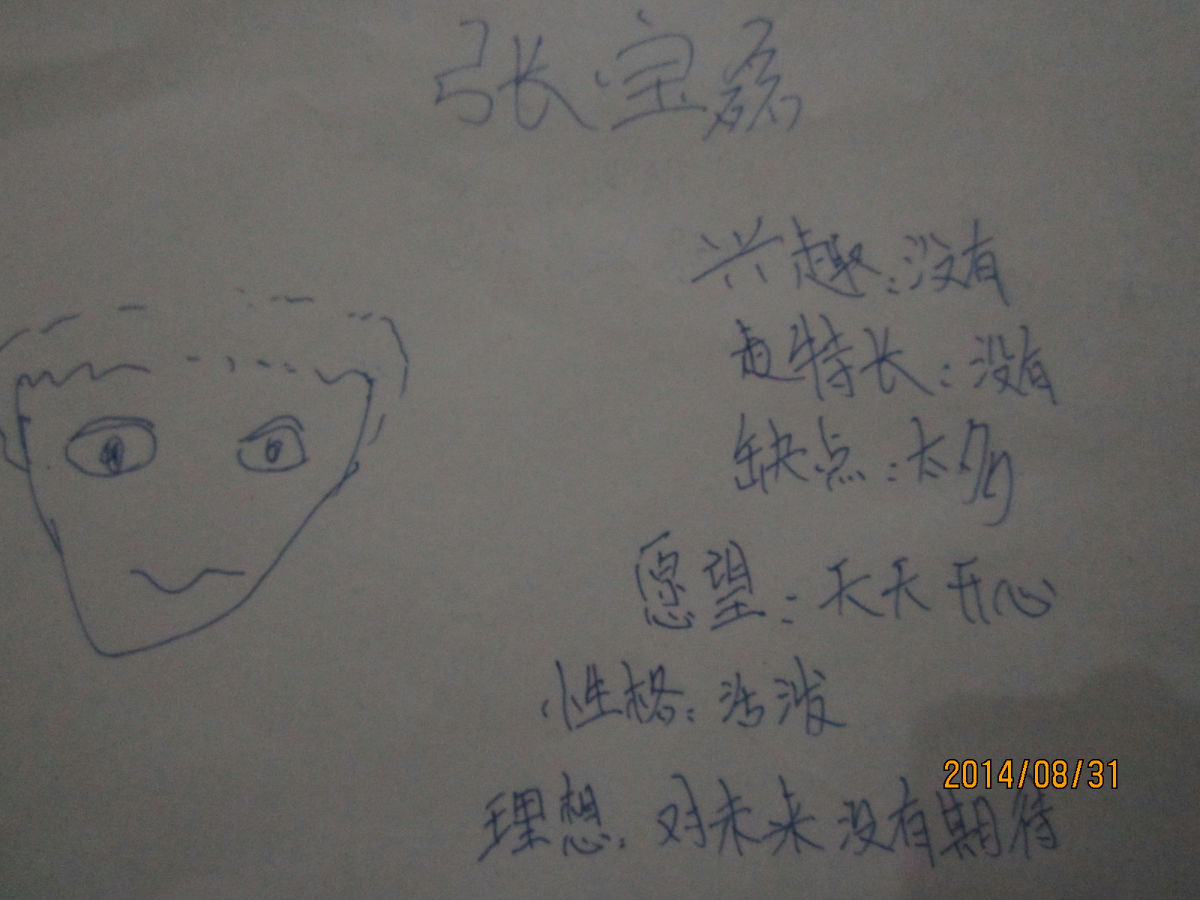 张宝磊
兴趣：没有
特长：没有
缺点：太多
愿望：天天开心
性格：活泼
理想：对未来没有期待
2014/08/31